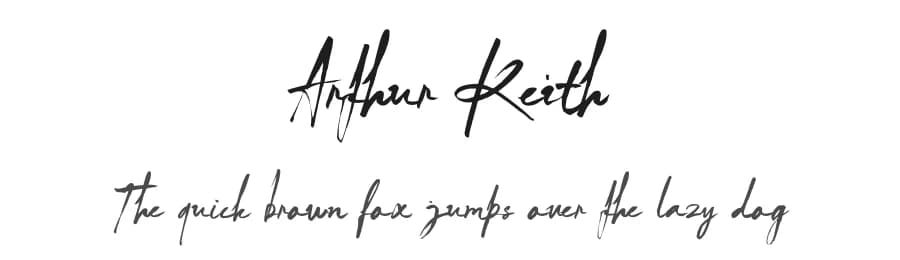 Arthur Keith
The quick brown fox jumps over the lazy dog